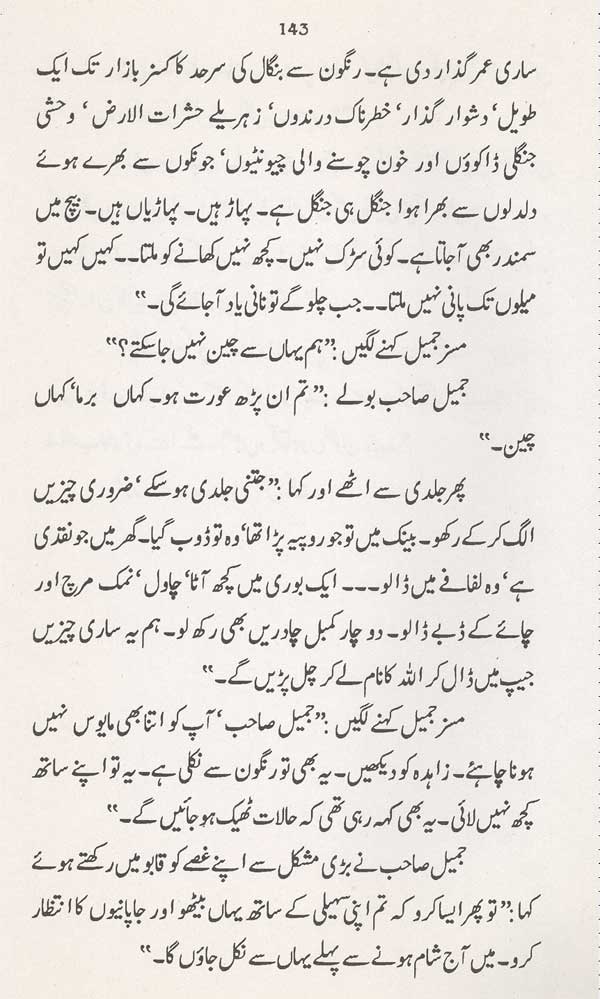 143
ساری عمر گذار دی ہے۔ رنگون سے بنگال کی سرحد کاکسز بازار تک ایک
طویل‘ دشوار گذار‘ خطرناک درندوں‘ زہریلے حشرات الارض‘ وحشی
جنگلی ڈاکوؤں اور خون چوسنے والی چیونٹیوں‘ جونکوں سے بھرے ہوئے
دلدلوں سے بھرا ہوا جنگل ہی جنگل ہے۔ پہاڑ ہیں۔ پہاڑیاں ہیں۔ بیچ میں
سمندر بھی آ جاتا ہے۔ کوئی سڑک نہیں۔ کچھ نہیں کھانے کو ملتا۔۔ کہیں کہیں تو
میلوں تک پانی نہیں ملتا۔۔ جب چلو گے تو نانی یاد آ جائے گی۔“
مسز جمیل کہنے لگیں : ”ہم یہاں سے چین نہیں جا سکتے؟“
جمیل صاحب بولے : ”تم ان پڑھ عورت ہو۔ کہاں برما‘ کہاں
چین۔“
پھر جلدی سے اٹھے اور کہا : ”جتنی جلدی ہو سکے‘ ضروری چیزیں
الگ کر کے رکھو۔ بینک میں تو جو روپیہ پڑا تھا‘ وہ تو ڈوب گیا۔ گھر میں جو نقدی
ہے‘ وہ لفافے میں ڈالو۔۔۔ ایک بوری میں کچھ آٹا‘ چاول‘ نمک مرچ اور
چائے کے ڈبے ڈالو۔ دو چار کمبل چادریں بھی رکھ لو۔ ہم یہ ساری چیزیں
جیپ میں ڈال کر اللہ کا نام لے کر چل پڑیں گے۔“
مسز جمیل کہنے لگیں : ”جمیل صاحب‘ آپ کو اتنا بھی مایوس نہیں
ہونا چاہئے۔ زاہدہ کو دیکھیں۔ یہ بھی تو رنگون سے نکلی ہے۔ یہ تو اپنے ساتھ
کچھ نہیں لائی۔ یہ بھی کہہ رہی تھی کہ حالات ٹھیک ہو جائیں گے۔“
جمیل صاحب نے بڑی مشکل سے اپنے غصے کو قابو میں رکھتے ہوئے
کہا : ”تو پھر ایسا کرو کہ تم اپنی سہیلی کے ساتھ یہاں بیٹھو اور جاپانیوں کا انتظار
کرو۔ میں آج شام ہونے سے پہلے یہاں سے نکل جاؤں گا۔“